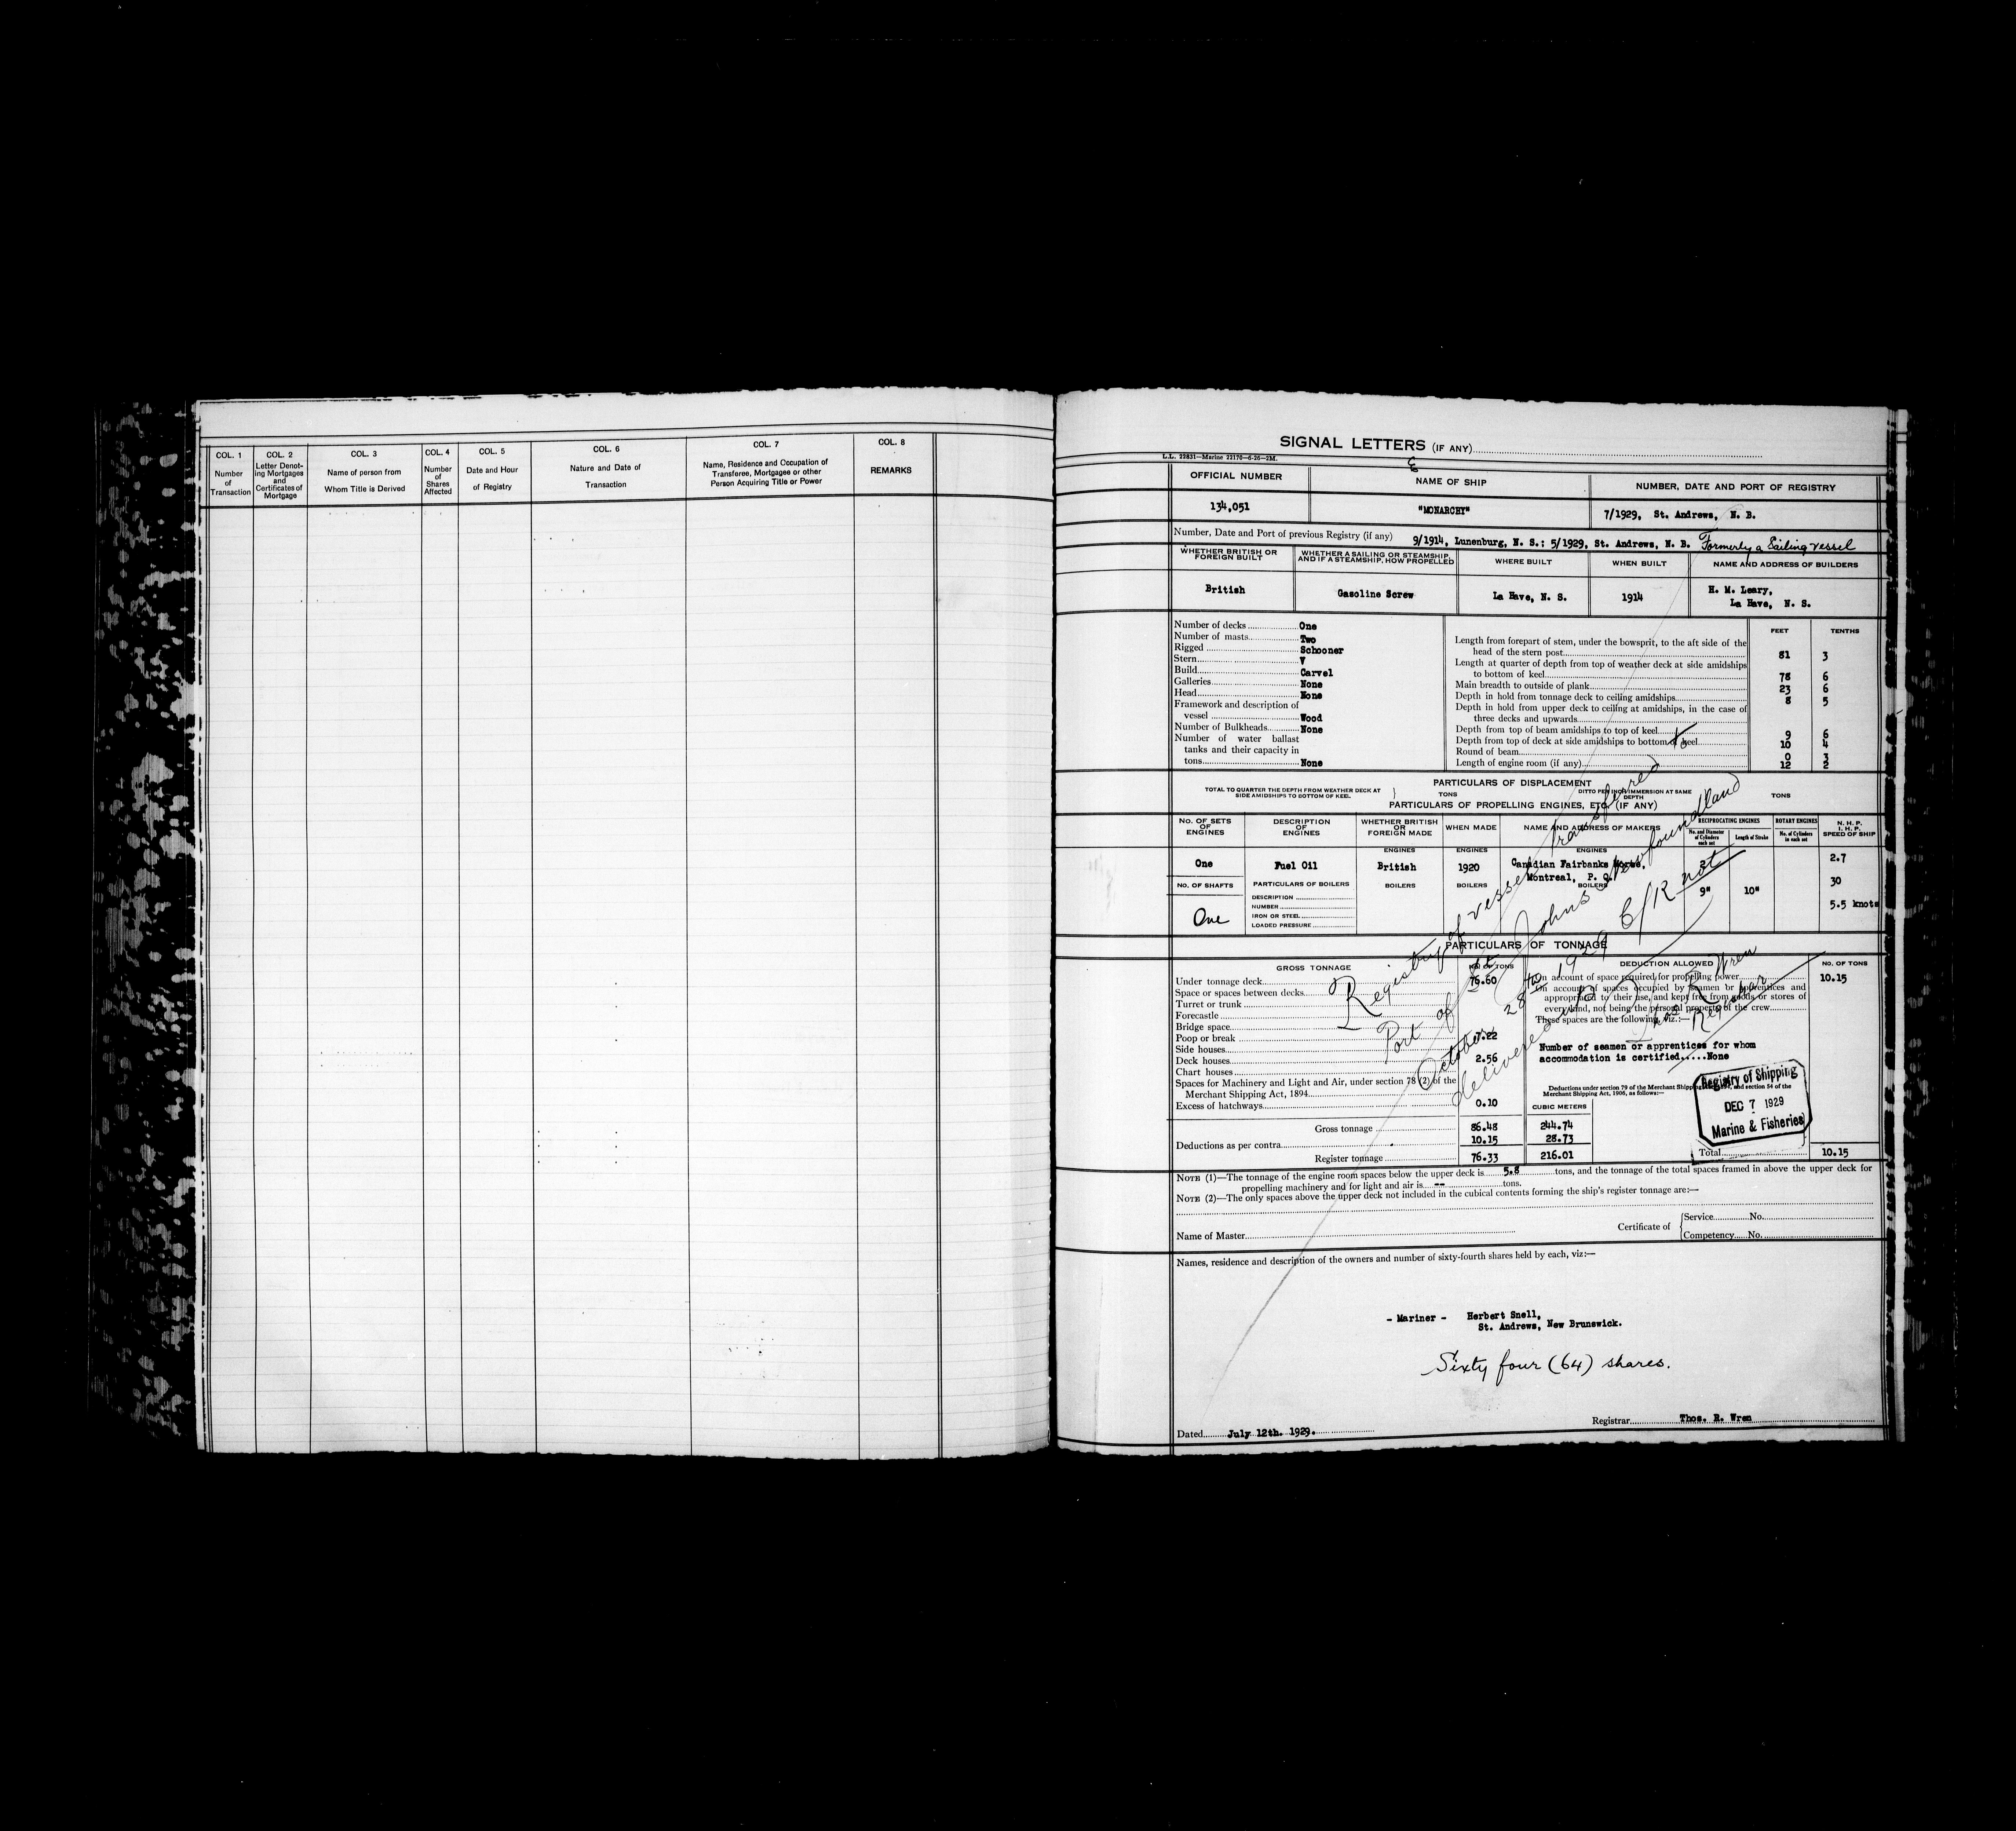 COL. 1
Number
of
Transaction
COL. 2
Letter Denot-
ing Mortgages
and
Certificates of
Mortgage
COL. 3
Name of person from
Whom Title is Derived
COL. 4
Number
of
Shares
Affected
COL. 5
Date and Hour
of Registry
COL. 6
Nature and Date of
Transaction
COL. 7
Name, Residence and Occupation of
Transferee, Mortgagee or other
Person Acquiring Title or Power
COL. 8
REMARKS
SIGNAL LETTERS (IF ANY)
L.L. 22831—Marine 22170—6-26—2M.
OFFICIAL NUMBER
NAME OF SHIP
NUMBER, DATE AND PORT OF REGISTRY
134,051
"MONARCHY"
7/1929, St. Andrews, N. B.
Number, Date and Port of previous Registry (if any) 9/1914, Lunenburg, N. S.: 5/1929, St. Andrews, N. B. Formerly a Sailing vessel
WHETHER BRITISH OR
FOREIGN BUILT
WHETHER A SAILING OR STEAMSHIP,
AND IF A STEAMSHIP, HOW PROPELLED
WHERE BUILT
WHEN BUILT
NAME AND ADDRESS OF BUILDERS
British
Gasoline Screw
La Have, N. S.
1914
H. M. Leary,
La Have, N. S.
Number of decks One
Number of masts Two
Rigged Schooner
Stern V
Build Carvel
Galleries None
Head None
Framework and description of
vessel Wood
Number of Bulkheads None
Number of water ballast
tanks and their capacity in
tons None
FEET TENTHS
Length from forepart of stem, under the bowsprit, to the aft side of the
head of the stern post 81 3
Length at quarter of depth from top of weather deck at side amidships
to bottom of keel 78 6
Main breadth to outside of plank 23 6
Depth in hold from tonnage deck to ceiling amidships 8 5
Depth in hold from upper deck to ceiling at amidships, in the case of
three decks and upwards
Depth from top of beam amidships to top of keel 9 6
Depth from top of deck at side amidships to bottom of keel 10 4
Round of beam 0 3
Length of engine room (if any) 12 2
PARTICULARS OF DISPLACEMENT
TOTAL TO QUARTER THE DEPTH FROM WEATHER DECK AT
SIDE AMIDSHIPS TO BOTTOM OF KEEL.
TONS
DITTO PER INCH IMMERSION AT SAME
DEPTH
TONS
PARTICULARS OF PROPELLING ENGINES, ETC. (IF ANY)
No. OF SETS
OF
ENGINES
DESCRIPTION
OF
ENGINES
WHETHER BRITISH
OR
FOREIGN MADE
WHEN MADE
NAME AND ADDRESS OF MAKERS
RECIPROCATING ENGINES
No. and Diameter
of Cylinders
each set
Length of Stroke
ROTARY ENGINES
No. of Cylinders
in each set
N. H. P.
I. H. P.
SPEED OF SHIP
ENGINES
ENGINES
ENGINES
One
Fuel Oil
British
1920
Canadian Fairbanks Morse,
Montreal, P. Q.
2
9"
10"
2.7
30
5.5 knots
No. OF SHAFTS
PARTICULARS OF BOILERS
BOILERS
BOILERS
BOILERS
One
DESCRIPTION
NUMBER
IRON OR STEEL
LOADED PRESSURE
PARTICULARS OF TONNAGE
GROSS TONNAGE
NO. OF TONS
Under tonnage deck 76.60
Space or spaces between decks
Turret or trunk
Forecastle
Bridge space
Poop or break 7.22
Side houses
Deck houses 2.56
Chart houses
Spaces for Machinery and Light and Air, under section 78 (2) of the
Merchant Shipping Act, 1894
Excess of hatchways 0.10
CUBIC METERS
Gross tonnage 86.48 244.74
Deductions as per contra 10.15 28.73
Register tonnage 76.33 216.01
DEDUCTION ALLOWED
NO. OF TONS
On account of space required for propelling power 10.15
On account of spaces occupied by seamen or apprentices and
appropriated to their use, and kept free from goods or stores of
every kind, not being the personal property of the crew
These spaces are the following, viz:—
Number of seamen or apprentices for whom
accommodation is certified.....None
Deductions under section 79 of the Merchant Shipping Act, 1894, and section 54 of the
Merchant Shipping Act, 1906, as follows:—
Total 10.15
Registry of vessel transferred
Port of St Johns Newfoundland
October 28th 1929 C/R not
delivered up
Thos R Wren
Registrar
Registry of Shipping
DEC 7 1929
Marine & Fisheries
NOTE (1)—The tonnage of the engine room spaces below the upper deck is 5.8 tons, and the tonnage of the total spaces framed in above the upper deck for
propelling machinery and for light and air is -- tons.
NOTE (2)—The only spaces above the upper deck not included in the cubical contents forming the ship's register tonnage are:—
Name of Master
Certificate of
Service No.
Competency No.
Names, residence and description of the owners and number of sixty-fourth shares held by each, viz:—
- Mariner - Herbert Snell,
St. Andrews, New Brunswick.
Sixty four (64) shares.
Dated July 12th. 1929.
Registrar Thos. R. Wren